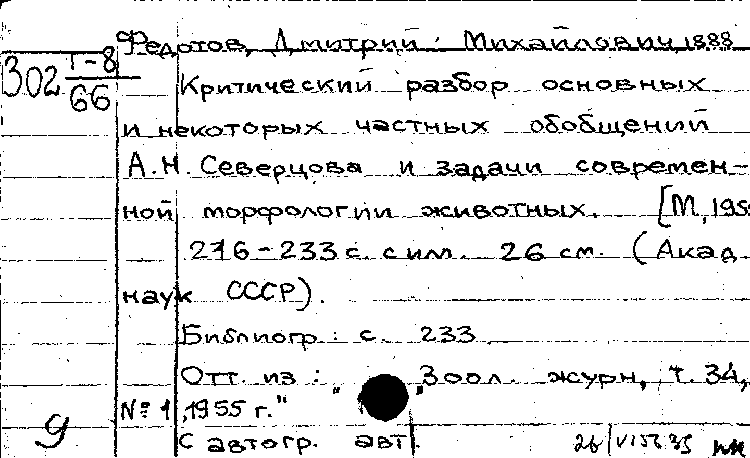 Федотов, Дмитрий Михайлович, 1888
302 Т-8
66
Критический разбор основных
и некоторых частных обобщений
А.Н. Северцова и задачи современ-
ной морфологии животных. [М, 195
216-233 с. с илл. 26 см. (Акад.
наук СССР).
Библиогр: с. 233
Отт. из: "Зоол. журн, т. 34,
№ 1, 1955 г."
9
С автогр. авт.